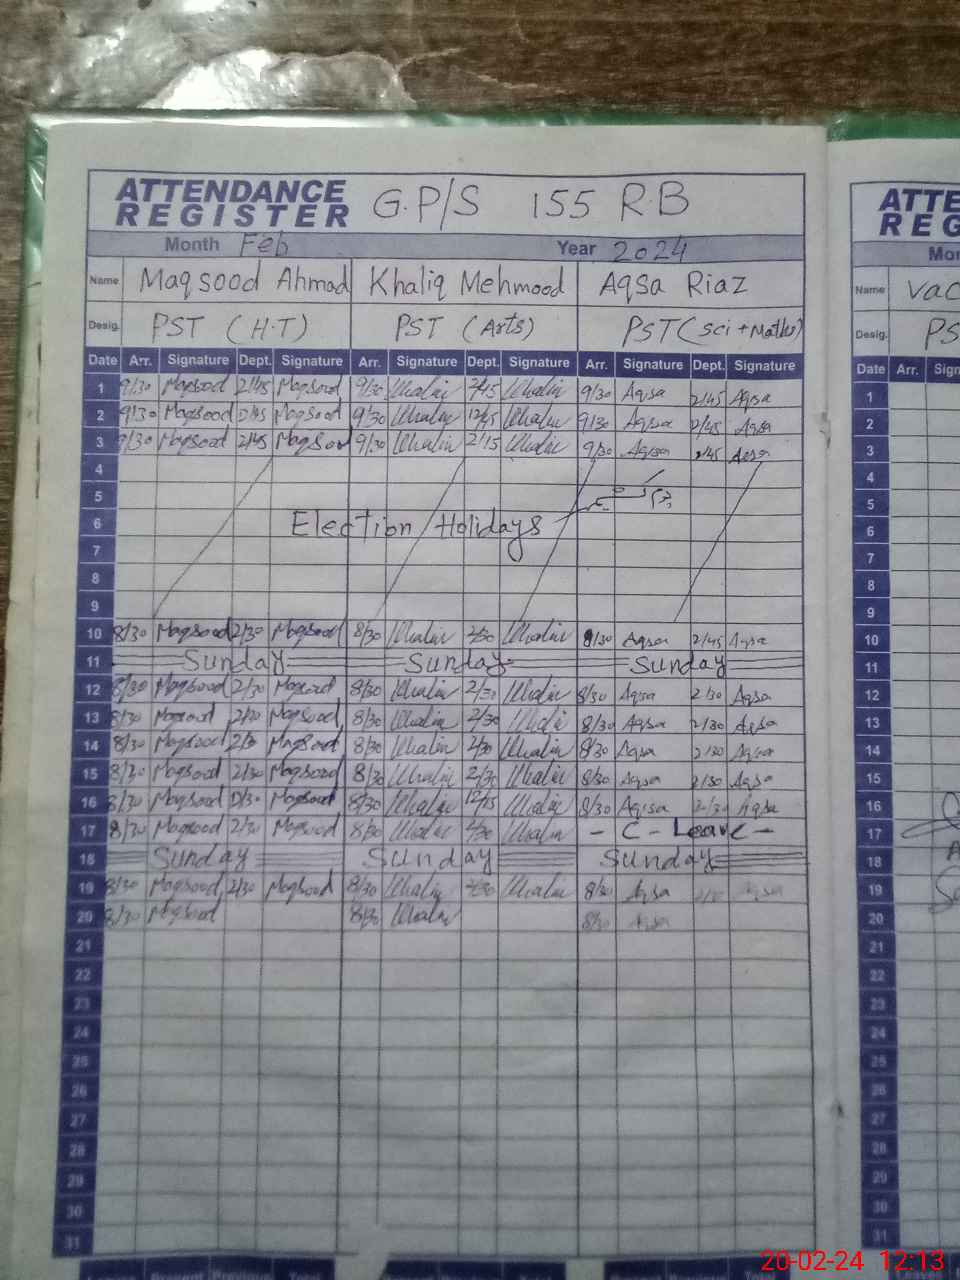 ATTENDANCE REGISTER G.P/S 155 R.B
Month Feb Year 2024
Name Maqsood Ahmad Khaliq Mehmood Aqsa Riaz
Desig. PST (H.T) PST (Arts) PST (Sci + Maths)
Date Arr. Signature Dept. Signature Arr. Signature Dept. Signature Arr. Signature Dept. Signature
1 9/30 Maqsood 2/45 Maqsood 9/30 Khaliq 2/45 Khaliq 9/30 Aqsa 2/45 Aqsa
2 9/30 Maqsood 2/45 Maqsood 9/30 Khaliq Khaliq 9/30 Aqsa 2/45 Aqsa
3 9/30 Maqsood 2/45 Maqsood 9/30 Khaliq 2/15 Khaliq 9/30 Aqsa 2/45 Aqsa
4
5
6 Election Holidays
7
8
9
10 8/30 Maqsood 2/30 Maqsood 8/30 Khaliq 2/30 Khaliq 8/30 Aqsa 2/45 Aqsa
11 Sunday Sunday Sunday
12 8/30 Maqsood 2/30 Maqsood 8/30 Khaliq 2/30 Khaliq 8/30 Aqsa 2/30 Aqsa
13 8/30 Maqsood 2/30 Maqsood 8/30 Khaliq 2/30 Khaliq 8/30 Aqsa 2/30 Aqsa
14 8/30 Maqsood 2/30 Maqsood 8/30 Khaliq 2/30 Khaliq 8/30 Aqsa 2/30 Aqsa
15 8/30 Maqsood 2/30 Maqsood 8/30 Khaliq 2/30 Khaliq 8/30 Aqsa 2/30 Aqsa
16 8/30 Maqsood Maqsood 8/30 Khaliq 12/15 Khaliq 8/30 Aqsa 2/30 Aqsa
17 8/30 Maqsood 2/30 Maqsood 8/30 Khaliq 2/30 Khaliq - C - Leave -
18 Sunday Sunday Sunday
19 8/30 Maqsood 2/30 Maqsood 8/30 Khaliq 2/30 Khaliq 8/30 Aqsa 2/30 Aqsa
20 8/30 Maqsood 8/30 Khaliq 8/30 Aqsa
21
22
23
24
25
26
27
28
29
30
31
ATTE
REG
Mon
Name Vac
Desig. PS
Date Arr. Sign
1
2
3
4
5
6
7
8
9
10
11
12
13
14
15
16
17
18
19
20
21
22
23
24
25
26
27
28
29
30
31
20-02-24 12:13